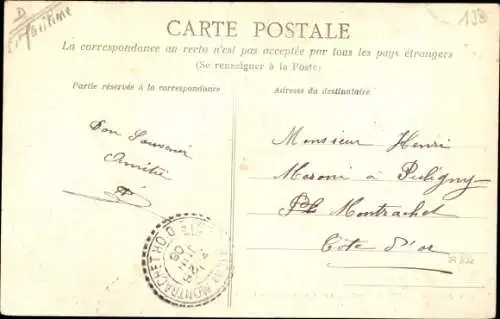 D
CARTE POSTALE
138
La correspondance au recto n'est pas acceptée par tous les pays étrangers
(Se renseigner à la Poste)
Partie réservée à la correspondance
Adresse du destinataire.
Bon Souvenir
Amitié
Monsieur Henri
Meroni à Puligny
Montrachet
Côte d'or
MONTRACHET